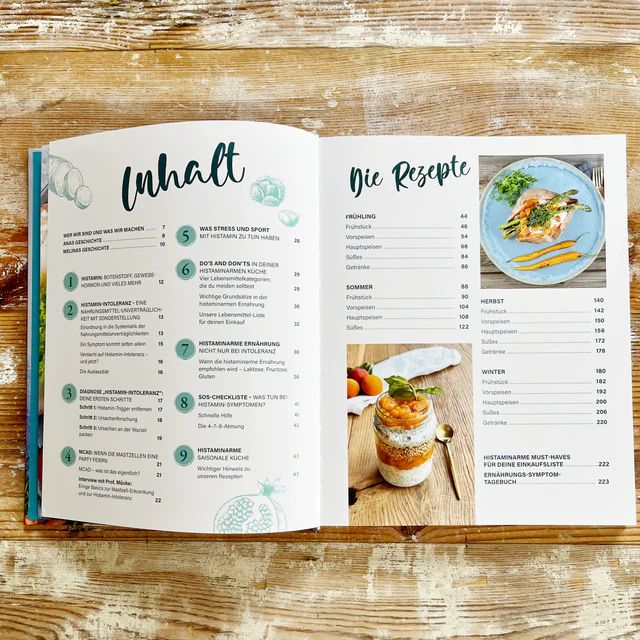 Inhalt
WER WIR SIND UND WAS WIR MACHEN 7
ANAS GESCHICHTE 8
MELINAS GESCHICHTE 10
1 HISTAMIN: BOTENSTOFF, GEWEBE-
HORMON UND VIELES MEHR 12
2 HISTAMIN-INTOLERANZ – EINE
NAHRUNGSMITTEL-UNVERTRÄGLICH-
KEIT MIT SONDERSTELLUNG 13
Einordnung in die Systematik der
Nahrungsmittelunverträglichkeiten 13
Ein Symptom kommt selten allein 15
Verdacht auf Histamin-Intoleranz –
und jetzt? 16
Die Auslassdiät 16
3 DIAGNOSE „HISTAMIN-INTOLERANZ“:
DEINE ERSTEN SCHRITTE 17
Schritt 1: Histamin-Trigger entfernen 17
Schritt 2: Ursachenforschung 18
Schritt 3: Ursachen an der Wurzel
packen 19
4 MCAD: WENN DIE MASTZELLEN EINE
PARTY FEIERN 21
MCAD – was ist das eigentlich? 21
Interview mit Prof. Mücke:
Einige Basics zur Mastzell-Erkrankung
und zur Histamin-Intoleranz 22
5 WAS STRESS UND SPORT
MIT HISTAMIN ZU TUN HABEN 26
6 DO'S AND DON'TS IN DEINER
HISTAMINARMEN KÜCHE 29
Vier Lebensmittelkategorien,
die du meiden solltest 29
Wichtige Grundsätze in der
histaminarmen Ernährung 30
Unsere Lebensmittel-Liste
für deinen Einkauf 32
7 HISTAMINARME ERNÄHRUNG
NICHT NUR BEI INTOLERANZ 36
Wann die histaminarme Ernährung
empfohlen wird – Laktose, Fructose,
Gluten 36
8 SOS-CHECKLISTE – WAS TUN BEI
HISTAMIN-SYMPTOMEN? 41
Schnelle Hilfe 41
Die 4-7-8-Atmung 42
9 HISTAMINARME
SAISONALE KÜCHE 43
Wichtiger Hinweis zu
unseren Rezepten 43
Die Rezepte
FRÜHLING 44
Frühstück 46
Vorspeisen 54
Hauptspeisen 66
Süßes 84
Getränke 86
SOMMER 88
Frühstück 90
Vorspeisen 104
Hauptspeisen 108
Süßes 122
HERBST 140
Frühstück 142
Vorspeisen 150
Hauptspeisen 156
Süßes 172
Getränke 178
WINTER 180
Frühstück 182
Vorspeisen 192
Hauptspeisen 200
Süßes 206
Getränke 220
HISTAMINARME MUST-HAVES
FÜR DEINE EINKAUFSLISTE 222
ERNÄHRUNGS-SYMPTOM-
TAGEBUCH 223